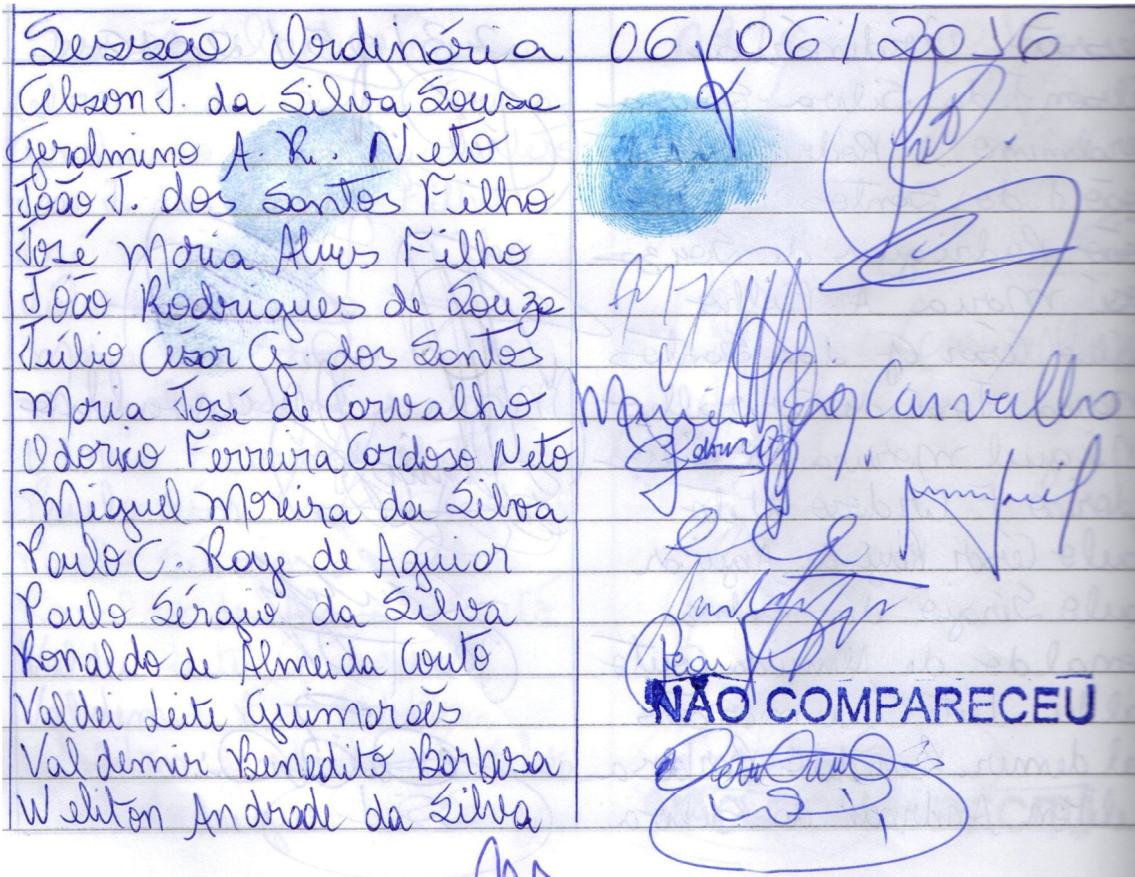 Sessão Ordinária 06/06/2016
Celson J. da Silva Souza
Geralmino A. R. Neto
João J. dos Santos Filho
José Maria Alves Filho
João Rodrigues de Souza
Júlio César G. dos Santos
Maria José de Carvalho Maria José Carvalho
Odorico Ferreira Cardoso Neto
Miguel Moreira da Silva
Paulo C. Raye de Aguiar
Paulo Sérgio da Silva
Ronaldo de Almeida Couto
Valdei Leite Guimarães NÃO COMPARECEU
Valdemir Benedito Barbosa
Weliton Andrade da Silva